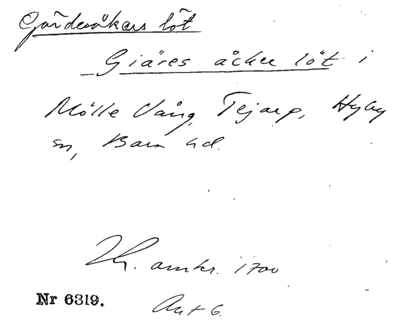 Gärdesåkers löt
Giäres åcker löt i
Mölle Vång, Tejarp, Hyby
sn, Bara hd.
Lh. omkr. 1700
Nr 6319.
Akt 6.